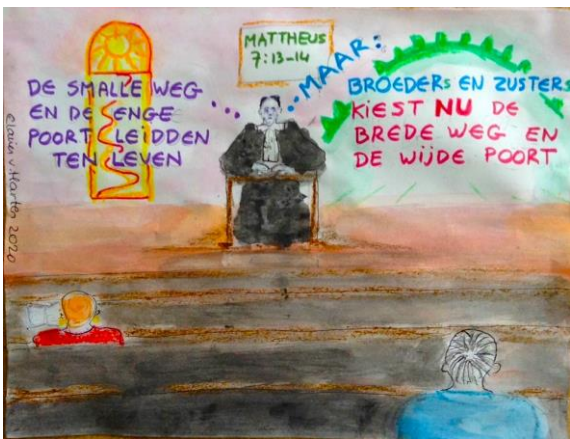 MATTHEUS
7:13-14
DE SMALLE WEG
EN DE ENGE
POORT LEIDDEN
TEN LEVEN
MAAR:
BROEDERS EN ZUSTERS
KIEST NU DE
BREDE WEG EN
DE WIJDE POORT